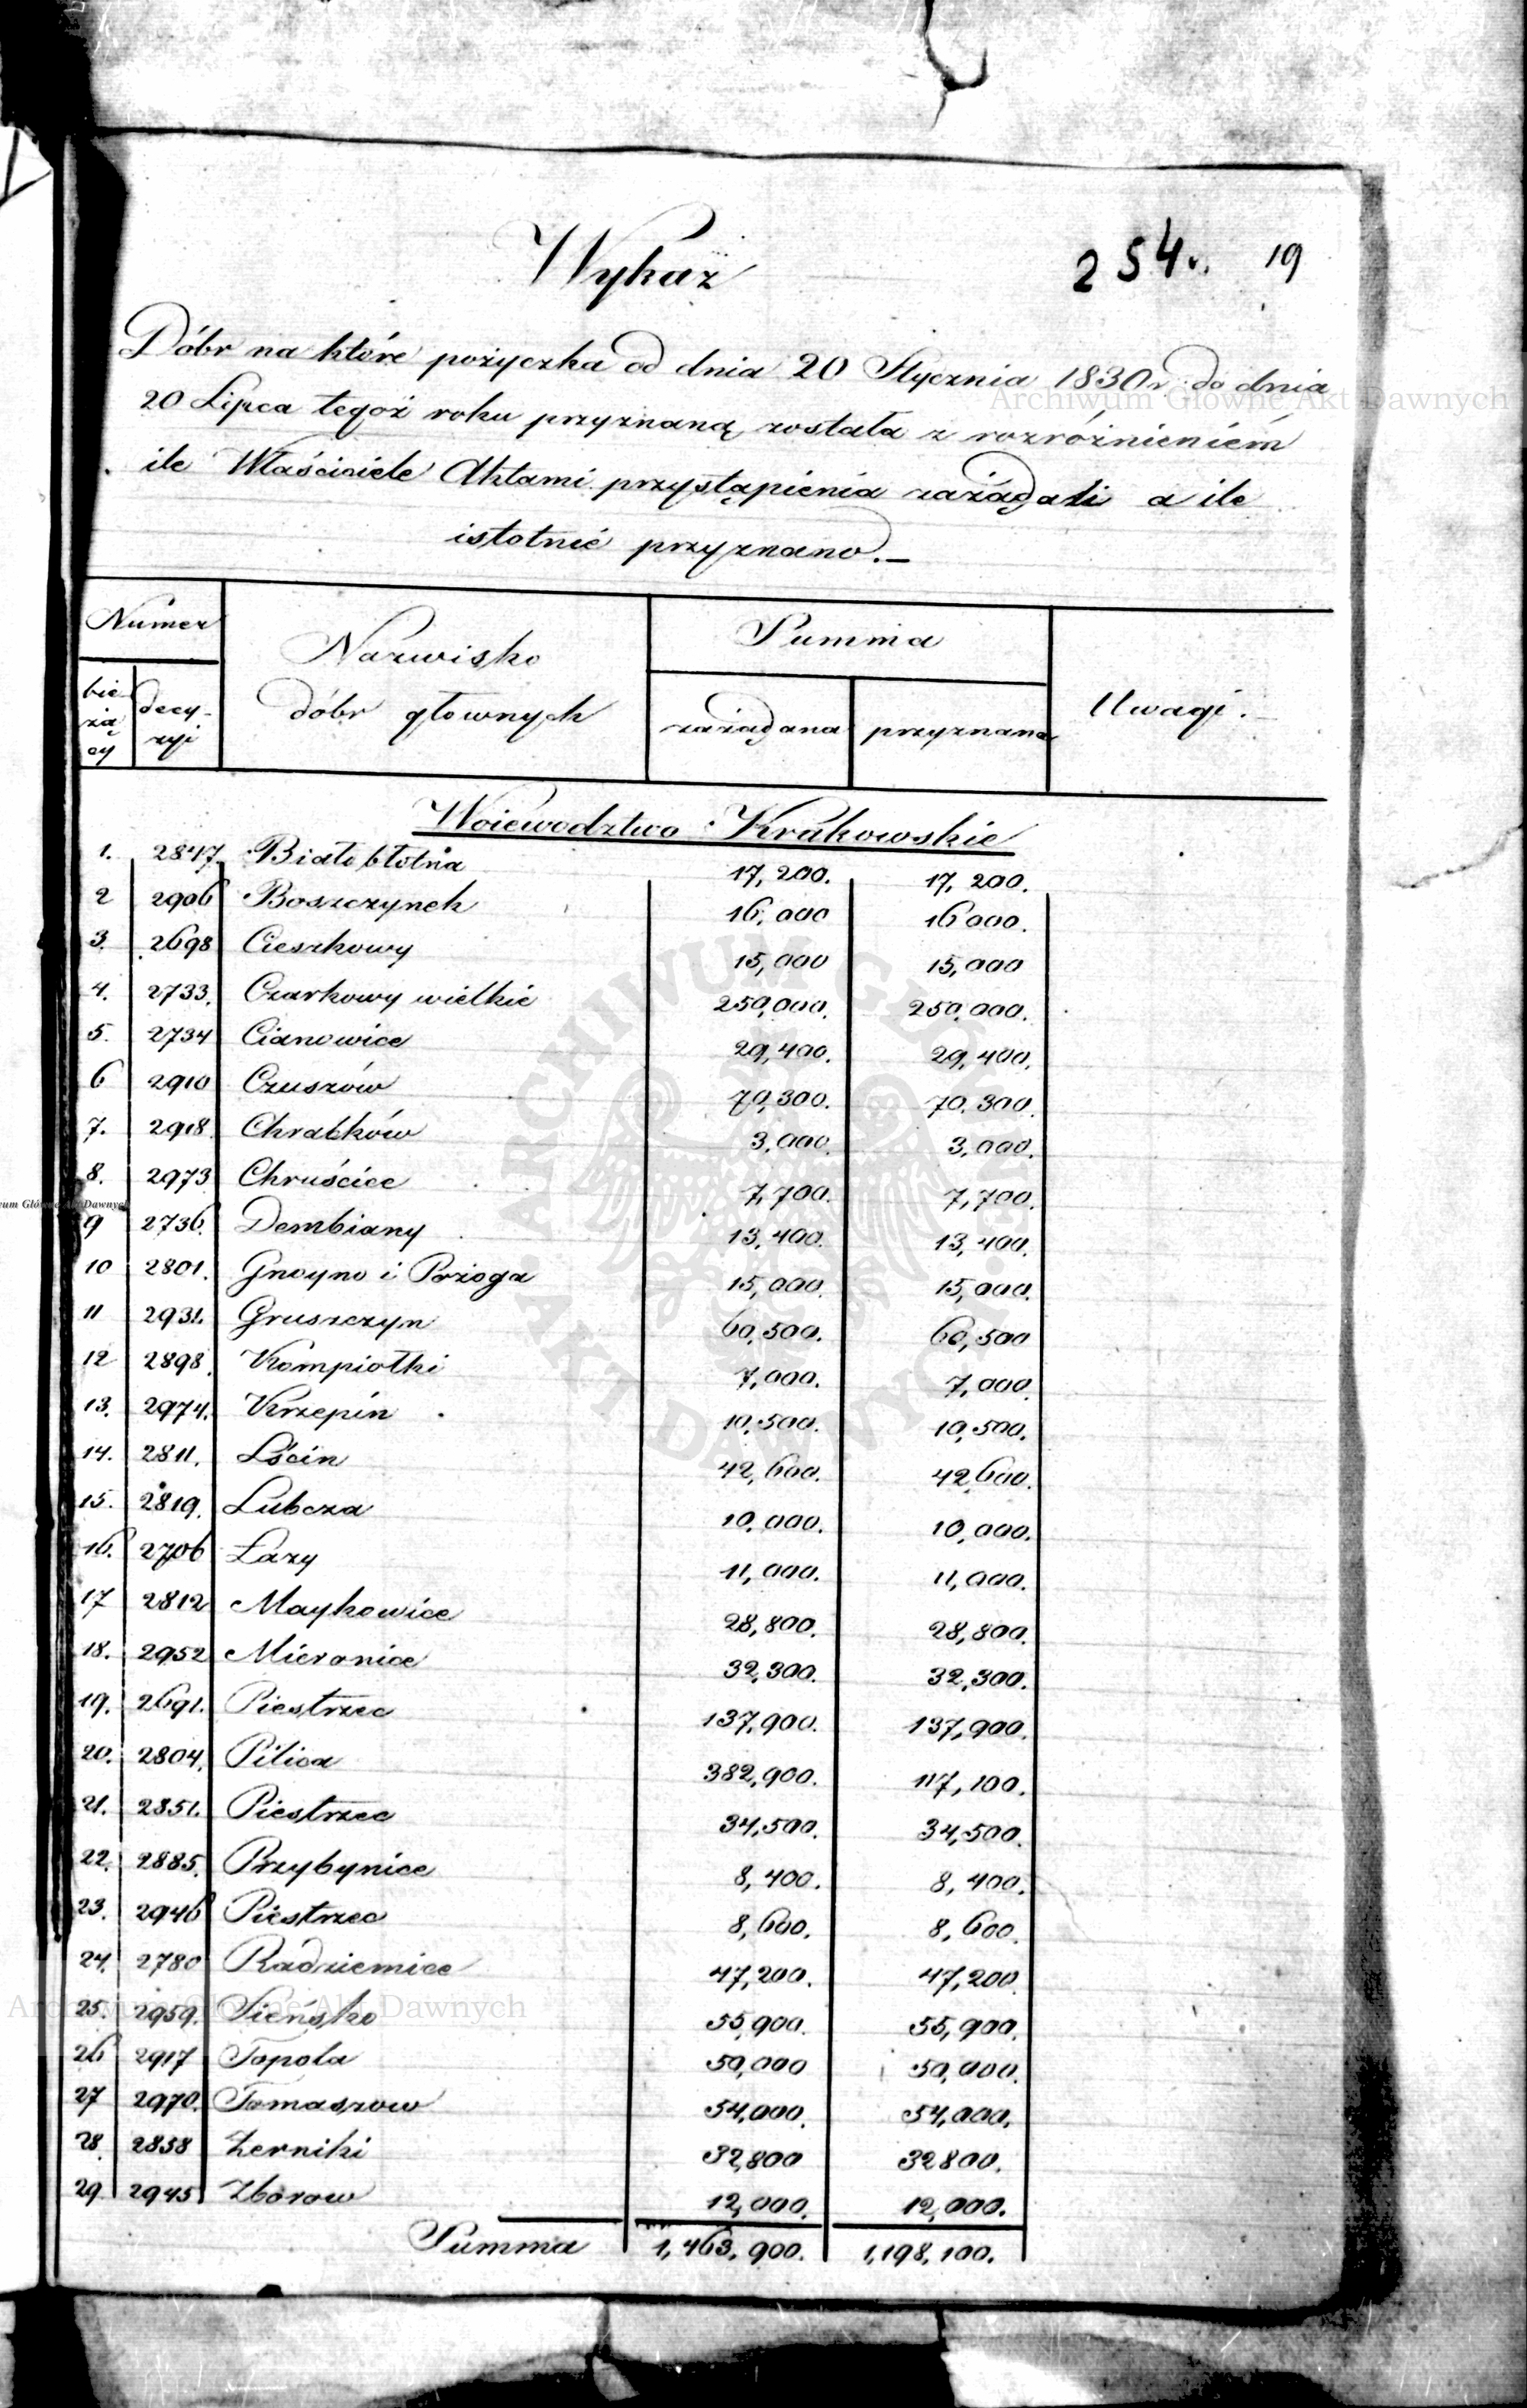 Wykaz
254. 19
Dóbr na które pożyczka od dnia 20 Stycznia 1830 r. do dnia
20 Lipca tegoż roku przyznaną została z rozróżnieniem
ile Właściciele Aktami przystąpienia zażądali a ile
istotnie przyznano.–
Numer
Nazwisko
dóbr głownych
Summa
Uwagi.
bie
żą
cy
decy-
zyi
zażądana
przyznana
Woiewodztwo Krakowskie
1. 2847 Biało błotnia 17,200. 17,200.
2 2906 Boszczynek 16,000 16000.
3. 2698 Cieszkowy 15,000 15,000
4. 2733. Czarkowy wielkie 250,000. 250,000.
5. 2734 Cianowice 29,400. 29,400.
6 2910 Czuszów 70,300. 70,300.
7. 2918 Chrabków 3,000. 3,000.
8. 2973 Chruścice 7,700. 7,700.
9 2736. Dembiany 13,400. 13,400.
10 2801. Gnoyno i Pożoga 15,000. 15,000.
11 2931. Gruszczyn 60,500. 60,500
12 2898. Kompiołki 7,000. 7,000.
13. 2974. Krzepin 10,500. 10,500.
14. 2811. Lścin 42,600. 42,600.
15. 2819. Lubcza 10,000. 10,000.
16. 2706 Łazy 11,000. 11,000.
17 2812 Maykowice 28,800. 28,800.
18. 2952 Mieronice 32,300. 32,300.
19. 2691. Piestrzec 137,900. 137,900.
20. 2804. Pilica 382,900. 117,100.
21. 2851. Piestrzec 34,500. 34,500.
22. 2885. Przybynice 8,400. 8,400.
23. 2946 Piestrzec 8,600. 8,600.
24. 2780 Radziemice 47,200. 47,200
25. 2959. Sieńsko 55,900. 55,900.
26 2917 Topola 50,000 50,000.
27 2970. Tomaszow 54,000. 54,000.
28. 2858 Zerniki 32,800 32800.
29 2945 Zborow 12,000. 12,000.
Summa 1,463,900. 1,198,100.
Archiwum Główne Akt Dawnych
ARCHIWUM GŁÓWNE AKT DAWNYCH
um Główne Akt Dawnych
Archiwum Główne Akt Dawnych